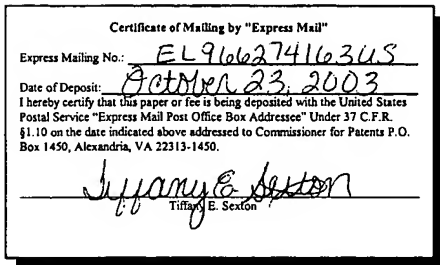 Certificate of Mailing by "Express Mail"
Express Mailing No.: EL966274163US
Date of Deposit: October 23, 2003
I hereby certify that this paper or fee is being deposited with the United States
Postal Service "Express Mail Post Office Box Addressee" Under 37 C.F.R.
§1.10 on the date indicated above addressed to Commissioner for Patents P.O.
Box 1450, Alexandria, VA 22313-1450.
Tiffany E. Sexton
Tiffany E. Sexton